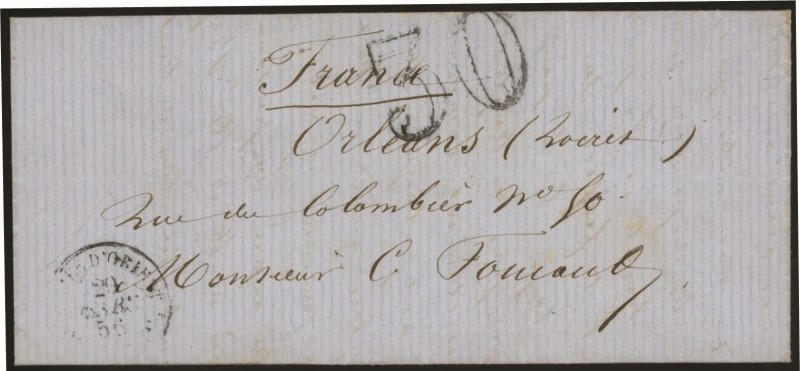 30
France
Orléans (Loiret)
Rue du Colombier no 50
Monsieur C
D'ORIENT
29
MARS
56